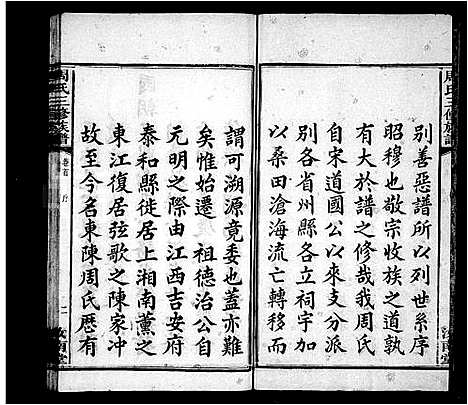 周氏三修族譜
別善惡譜所以列世系序
昭穆也敬宗收族之道孰
有大於譜之修哉我周氏
自宋道國公以來支分派
別各省州縣各立祠宇加
以桑田滄海流亡轉移而
謂可溯源竟委也蓋亦難
矣惟始遷 祖德治公自
元明之際由江西吉安府
泰和縣徙居上湘南薰之
東江復居弦歌之陳家冲
故至今名東陳周氏歷有
周氏三修族譜
卷首
序
一
汝南堂